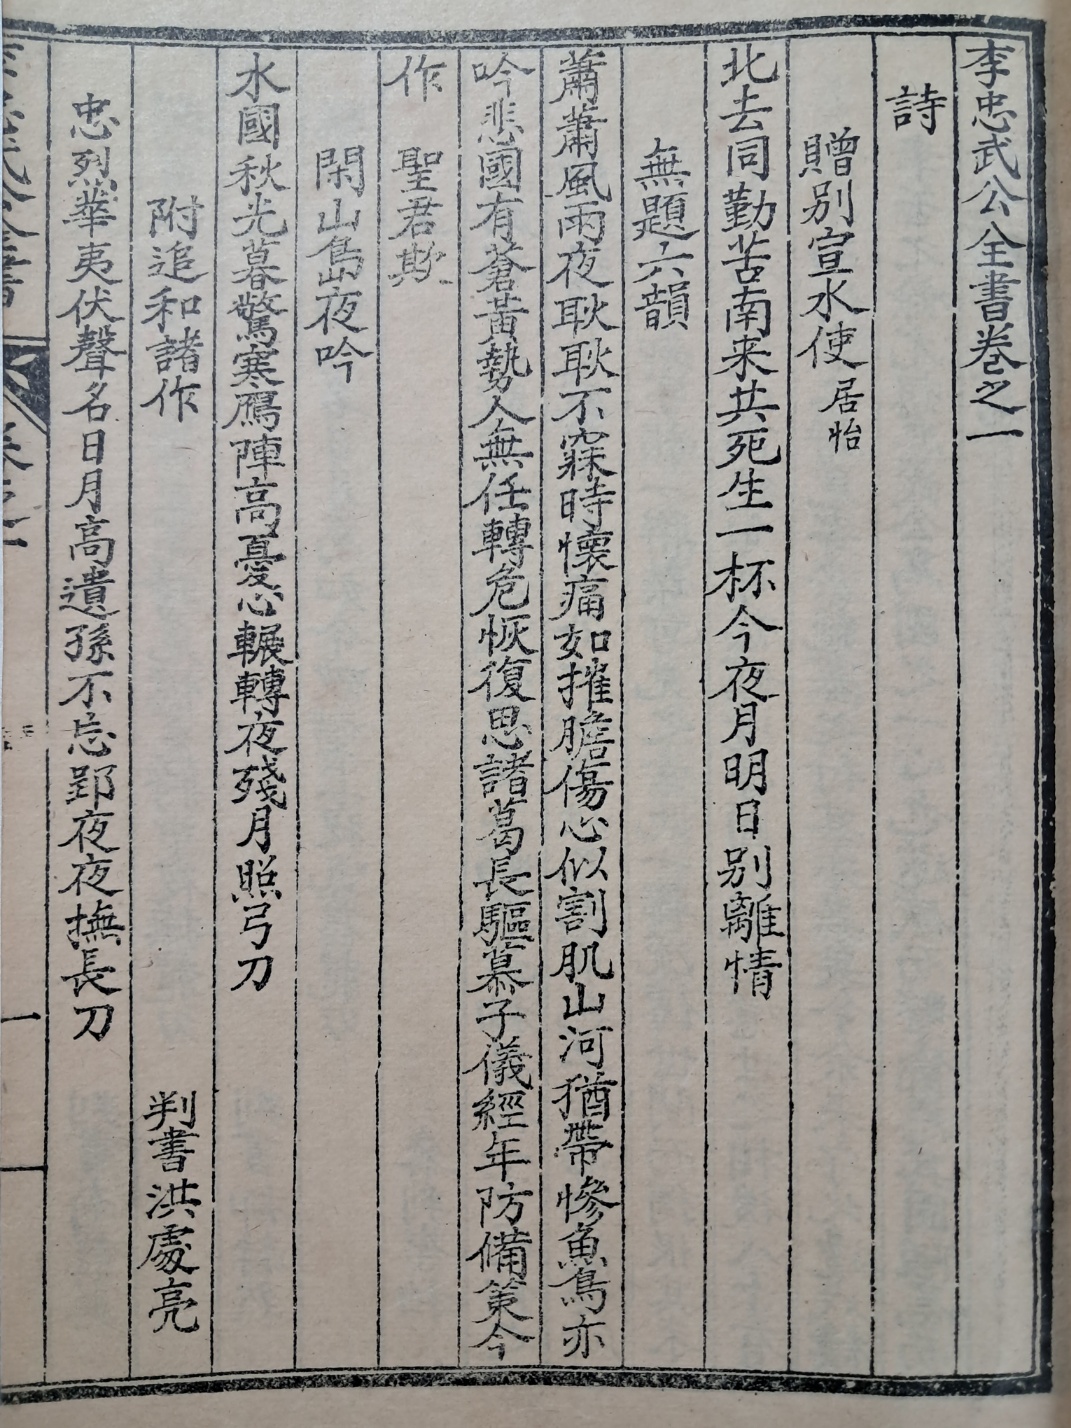 李忠武公全書卷之一
詩
贈別宣水使居怡
北去同勤苦南来共死生一杯今夜月明日別離情
無題六韻
蕭蕭風雨夜耿耿不寐時懷痛如摧膽傷心似割肌山河猶帶慘魚鳥亦
吟悲國有蒼黃勢人無任轉危恢復思諸葛長驅慕子儀經年防備策今
作聖君欺
閑山島夜吟
水國秋光暮驚寒鴈陣高憂心輾轉夜殘月照弓刀
附追和諸作 判書洪處亮
忠烈華夷伏聲名日月高遺孫不忘郢夜夜撫長刀
李忠武公全書 卷之一 一